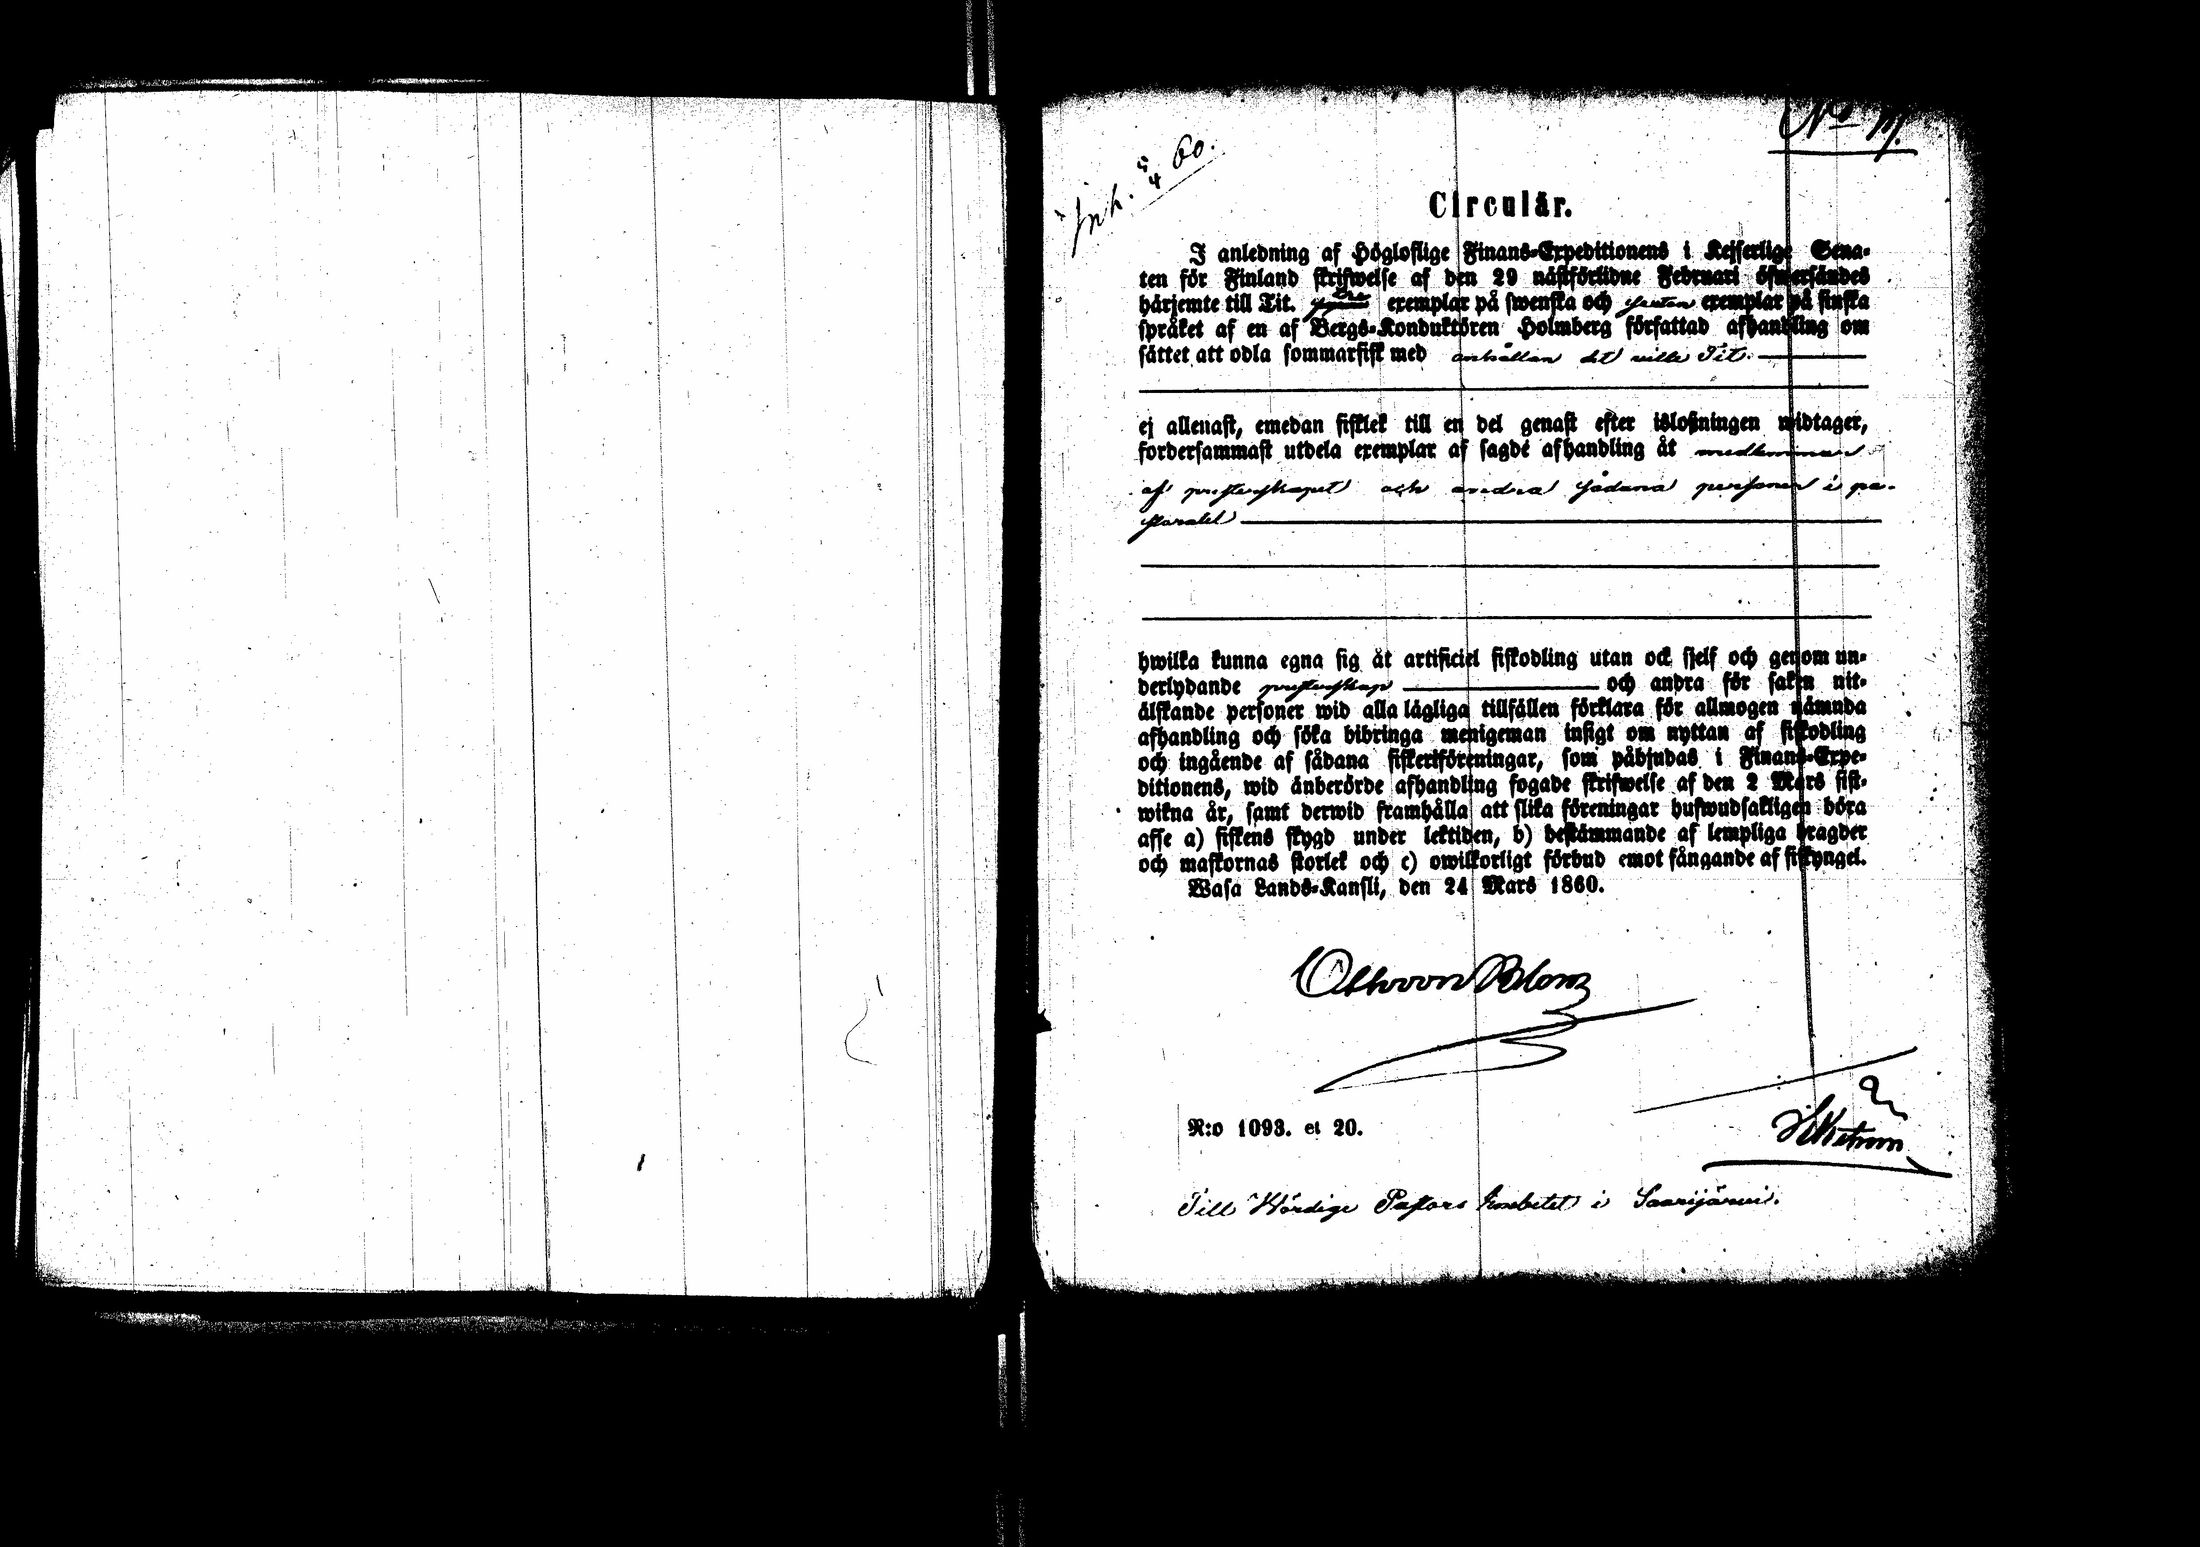 Inh. 5/4 60.
Circulär.
I anledning af Högloflige Finans-Expeditionens i Kejserlige Sena-
ten för Finland skrifwelse af den 29 nästförlidne Februari öfwersändes
härjemte till Tit. exemplar på swenska och exemplar på finska
språket af en af Bergs-Konduktören Holmberg författad afhandling om
sättet att odla sommarfisk med anhållan det wille Tit.
ej allenast, emedan fisklek till en del genast efter islossningen widtager,
fordersammast utdela exemplar af sagde afhandling åt medlemmar
af presterskapet och andra sådana personer i pa-
storatet
hwilka kunna egna sig åt artificiel fiskodling utan ock sjelf och genom un-
derlydande presterskap och andra för saken nit-
älskande personer wid alla lägliga tillfällen förklara för allmogen nämnda
afhandling och söka bibringa menigeman insigt om nyttan af fiskodling
och ingående af sådana fiskeriföreningar, som påbjudas i Finans-Expe-
ditionens, wid änberörde afhandling fogade skrifwelse af den 2 Mars sist-
wikna år, samt derwid framhålla att slika föreningar hufwudsakligen böra
afse a) fiskens skygd under lektiden, b) bestämmande af lempliga bragder
och maskornas storlek och c) owilkorligt förbud emot fångande af fiskyngel.
Wasa Lands-Kansli, den 24 Mars 1860.
Otto von Blom
N:o 1093. et 20.
Till Wördige Pastors Embetet i Saarijärwi.